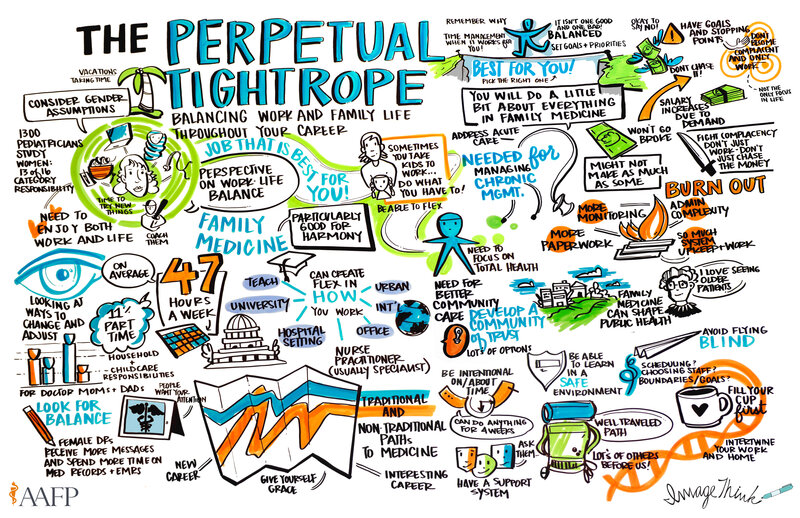 THE PERPETUAL
TIGHTROPE
BALANCING WORK AND FAMILY LIFE
THROUGHOUT YOUR CAREER
VACATIONS
TAKING TIME
CONSIDER GENDER
ASSUMPTIONS
1300
PEDIATRICIANS
STUDY
WOMEN:
13 of 16
CATEGORY
RESPONSIBILITY
TIME TO
TRY NEW
THINGS
COACH
THEM
NEED TO
ENJOY BOTH
WORK AND LIFE
JOB THAT IS BEST FOR
YOU!
PERSPECTIVE
ON WORK-LIFE
BALANCE
SOMETIMES
YOU TAKE
KIDS TO
WORK...
DO WHAT
YOU HAVE TO!
BE ABLE TO FLEX
FAMILY
MEDICINE
PARTICULARLY
GOOD FOR
HARMONY
REMEMBER WHY
TIME MANAGEMENT
WHEN IT WORKS FOR
YOU!
IT ISN'T ONE GOOD
AND ONE BAD!
BALANCED
SET GOALS + PRIORITIES
BEST FOR YOU!
PICK THE RIGHT ONE
OKAY TO
SAY NO!
HAVE GOALS
AND STOPPING
POINTS
DON'T
BECOME
COMPLACENT
AND ONLY
WORK
DON'T CHASE
IT!
NOT THE
ONLY FOCUS
IN LIFE
SALARY
INCREASES
DUE TO
DEMAND
YOU WILL DO A LITTLE
BIT ABOUT EVERYTHING
IN FAMILY MEDICINE
ADDRESS ACUTE
CARE
NEEDED for
MANAGING
CHRONIC
MGMT.
WON'T GO
BROKE
MIGHT NOT
MAKE AS MUCH
AS SOME
FIGHT COMPLACENCY
DON'T JUST
WORK - DON'T
JUST CHASE
THE MONEY
BURN OUT
MORE
MONITORING
MORE
PAPERWORK
ADMIN
COMPLEXITY
SO MUCH
SYSTEM
UPKEEP + WORK
NEED TO
FOCUS ON
TOTAL HEALTH
LOOKING AT
WAYS TO
CHANGE AND
ADJUST
ON
AVERAGE
47
HOURS
A WEEK
11%
PART
TIME
HOUSEHOLD
+
CHILDCARE
RESPONSIBILITIES
FOR DOCTOR MOMS + DADS
TEACH
UNIVERSITY
HOSPITAL
SETTING
CAN CREATE
FLEX IN
HOW
YOU WORK
URBAN
INT'L
OFFICE
NURSE
PRACTITIONER
(USUALLY SPECIALIST)
NEED FOR
BETTER
COMMUNITY
CARE
DEVELOP A
COMMUNITY
of TRUST
LOTS OF OPTIONS
FAMILY
MEDICINE
CAN SHAPE
PUBLIC HEALTH
I LOVE SEEING
OLDER
PATIENTS
AVOID FLYING
BLIND
SCHEDULING?
CHOOSING STAFF?
BOUNDARIES/GOALS?
FILL YOUR
CUP
first
INTERTWINE
YOUR WORK
AND HOME
BE ABLE
TO LEARN
IN A
SAFE
ENVIRONMENT
BE INTENTIONAL
ON/ABOUT
TIME
CAN DO ANYTHING
FOR 4 WEEKS
ASK
THEM
HAVE A SUPPORT
SYSTEM
WELL TRAVELED
PATH
LOTS OF OTHERS
BEFORE US!
LOOK FOR
BALANCE
PEOPLE WANT
YOUR
ATTENTION
FEMALE DPs
RECEIVE MORE MESSAGES
AND SPEND MORE TIME ON
MED RECORDS + EMRS
TRADITIONAL
AND
NON-TRADITIONAL
PATHS
TO MEDICINE
NEW
CAREER
GIVE YOURSELF
GRACE
INTERESTING
CAREER
AAFP
ImageThink